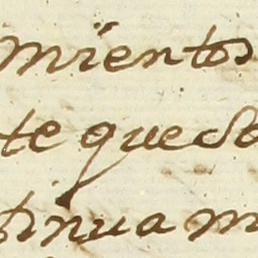 mientos
te que so
tinua m